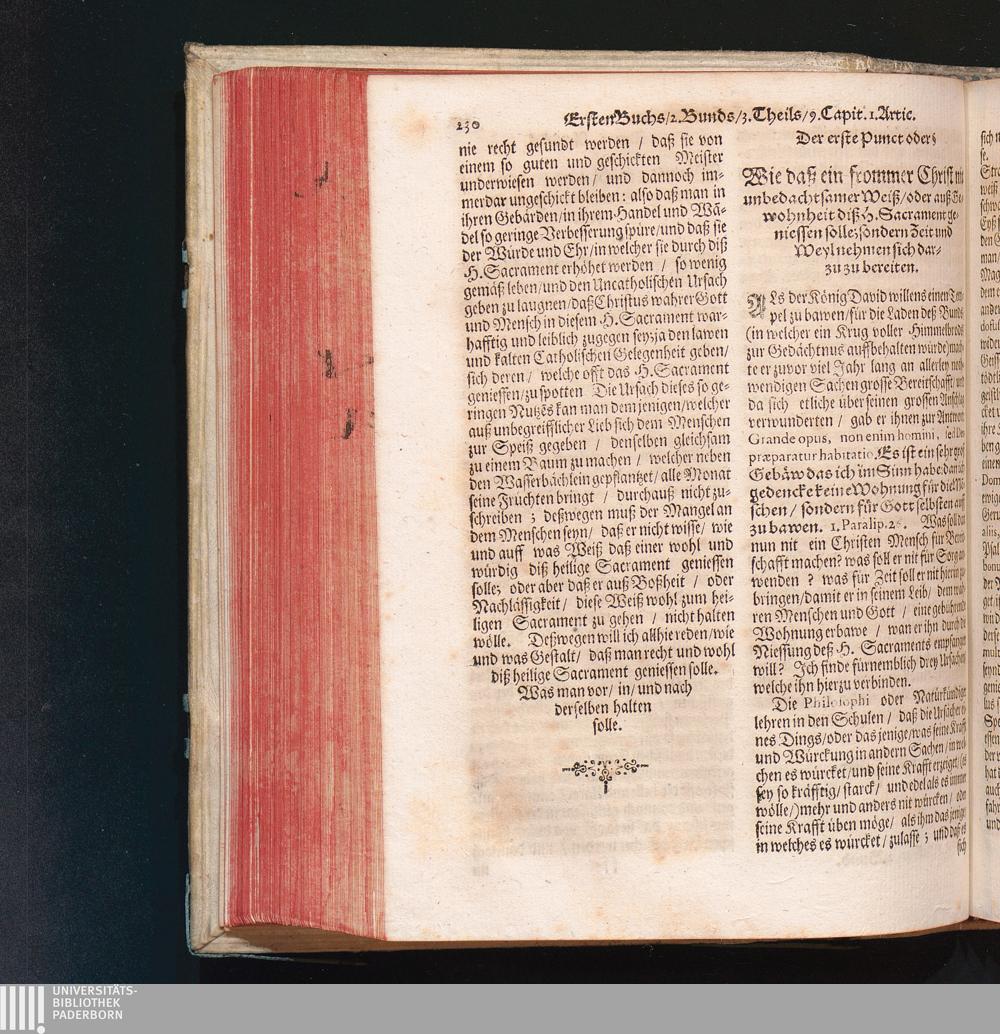 230
Ersten Buchs/2. Bunds/3. Theils/9. Capit. 1. Artic.
nie recht gesundt werden / daß sie von
einem so guten und geschickten Meister
underwiesen werden/ und dannoch im-
merdar ungeschickt bleiben: also daß man in
ihren Gebärden/in ihrem Handel und Wä-
del so geringe Verbesserung spüre/und daß sie
der Würde und Ehr/in welcher sie durch diß
H. Sacrament erhöhet werden / so wenig
gemäß leben/und den Uncatholischen Ursach
geben zu laugnen/daß Christus wahrer Gott
und Mensch in diesem H. Sacrament war-
hafftig und leiblich zugegen sey; ja den lawen
und kalten Catholischen Gelegenheit geben/
sich deren / welche offt das H. Sacrament
geniessen/zu spotten Die Ursach dieses so ge-
ringen Nutzẽs kan man dem jenigen/welcher
auß unbegreifflicher Lieb sich dem Menschen
zur Speiß gegeben / denselben gleichsam
zu einem Baum zu machen / welcher neben
den Wasserbächlein gepflantzet/alle Monat
seine Früchten bringt / durchauß nicht zu-
schreiben ; deßwegen muß der Mangel an
dem Menschen seyn/ daß er nicht wisse/ wie
und auff was Weiß daß einer wohl und
würdig diß heilige Sacrament geniessen
solle; oder aber daß er auß Boßheit / oder
Nachlässigkeit / diese Weiß wohl zum hei-
ligen Sacrament zu gehen / nicht halten
wölle. Deßwegen will ich allhie reden/wie
und was Gestalt/ daß man recht und wohl
diß heilige Sacrament geniessen solle.
Was man vor/ in/ und nach
derselben halten
solle.
Der erste Punct oder:
Wie daß ein frommer Christ nit
unbedachtsamer Weiß/oder auß Ge-
wohnheit diß H. Sacrament ge-
niessen solle; sondern Zeit und
Weyl nehmen sich dar-
zu zu bereiten.
ALs der König David willens einen Tem-
pel zu bawen/für die Laden deß Bunds
(in welcher ein Krug voller Himmelbrods
zur Gedächtnus auffbehalten würde) mach-
te er zuvor viel Jahr lang an allerley noth-
wendigen Sachen grosse Bereitschafft/ und
da sich etliche über seinen grossen Anschlag
verwunderten / gab er ihnen zur Antwort
Grande opus, non enim homini, sed Deo
præparatur habitatio. Es ist ein sehr groß
Gebäw das ich im Sinn habe: dan ich
gedencke keine Wohnung für die Mẽ-
schen / sondern für Gott selbsten auff
zu bawen. 1. Paralip. Was soll dan
nun nit ein Christen Mensch für Bereit
schafft machen? was soll er nit für Sorg an
wenden ? was für Zeit soll er nit hierin zu
bringen/damit er in seinem Leib/ dem wah
ren Menschen und Gott / eine gebührende
Wohnung erbawe / wan er ihn durch die
Niessung deß H. Sacraments empfangen
will? Ich finde fürnemblich drey Ursachen
welche ihn hierzu verbinden.
Die Philosophi oder Natürkündige
lehren in den Schulen / daß die Ursach ei
nes Dings/oder das jenige/was seine Krafft
und Würckung in andern Sachen/ in wel
chen es würcket/und seine Krafft erzeiget/(es
sey so kräfftig/ starck/ und edel als es immer
wölle/) mehr und anders nit würcken/ oder
seine Krafft üben möge/ als ihm das jenige
in welches es würcket/ zulasse ; und daß es
sich
UNIVERSITÄTS-
BIBLIOTHEK
PADERBORN